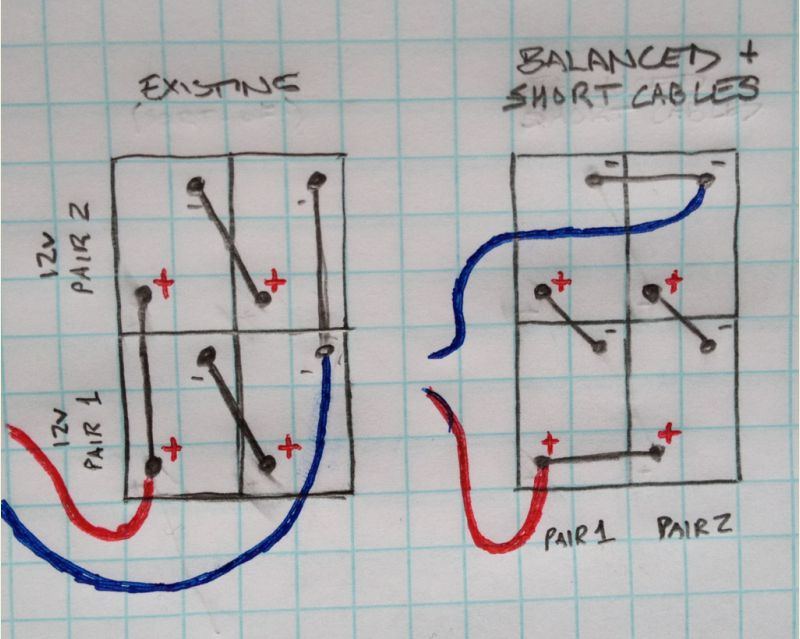 EXISTING
12V
PAIR 2
12V
PAIR 1
- +
- +
+ -
+ -
BALANCED +
SHORT CABLES
- -
+ +
- -
+ +
PAIR 1 PAIR 2